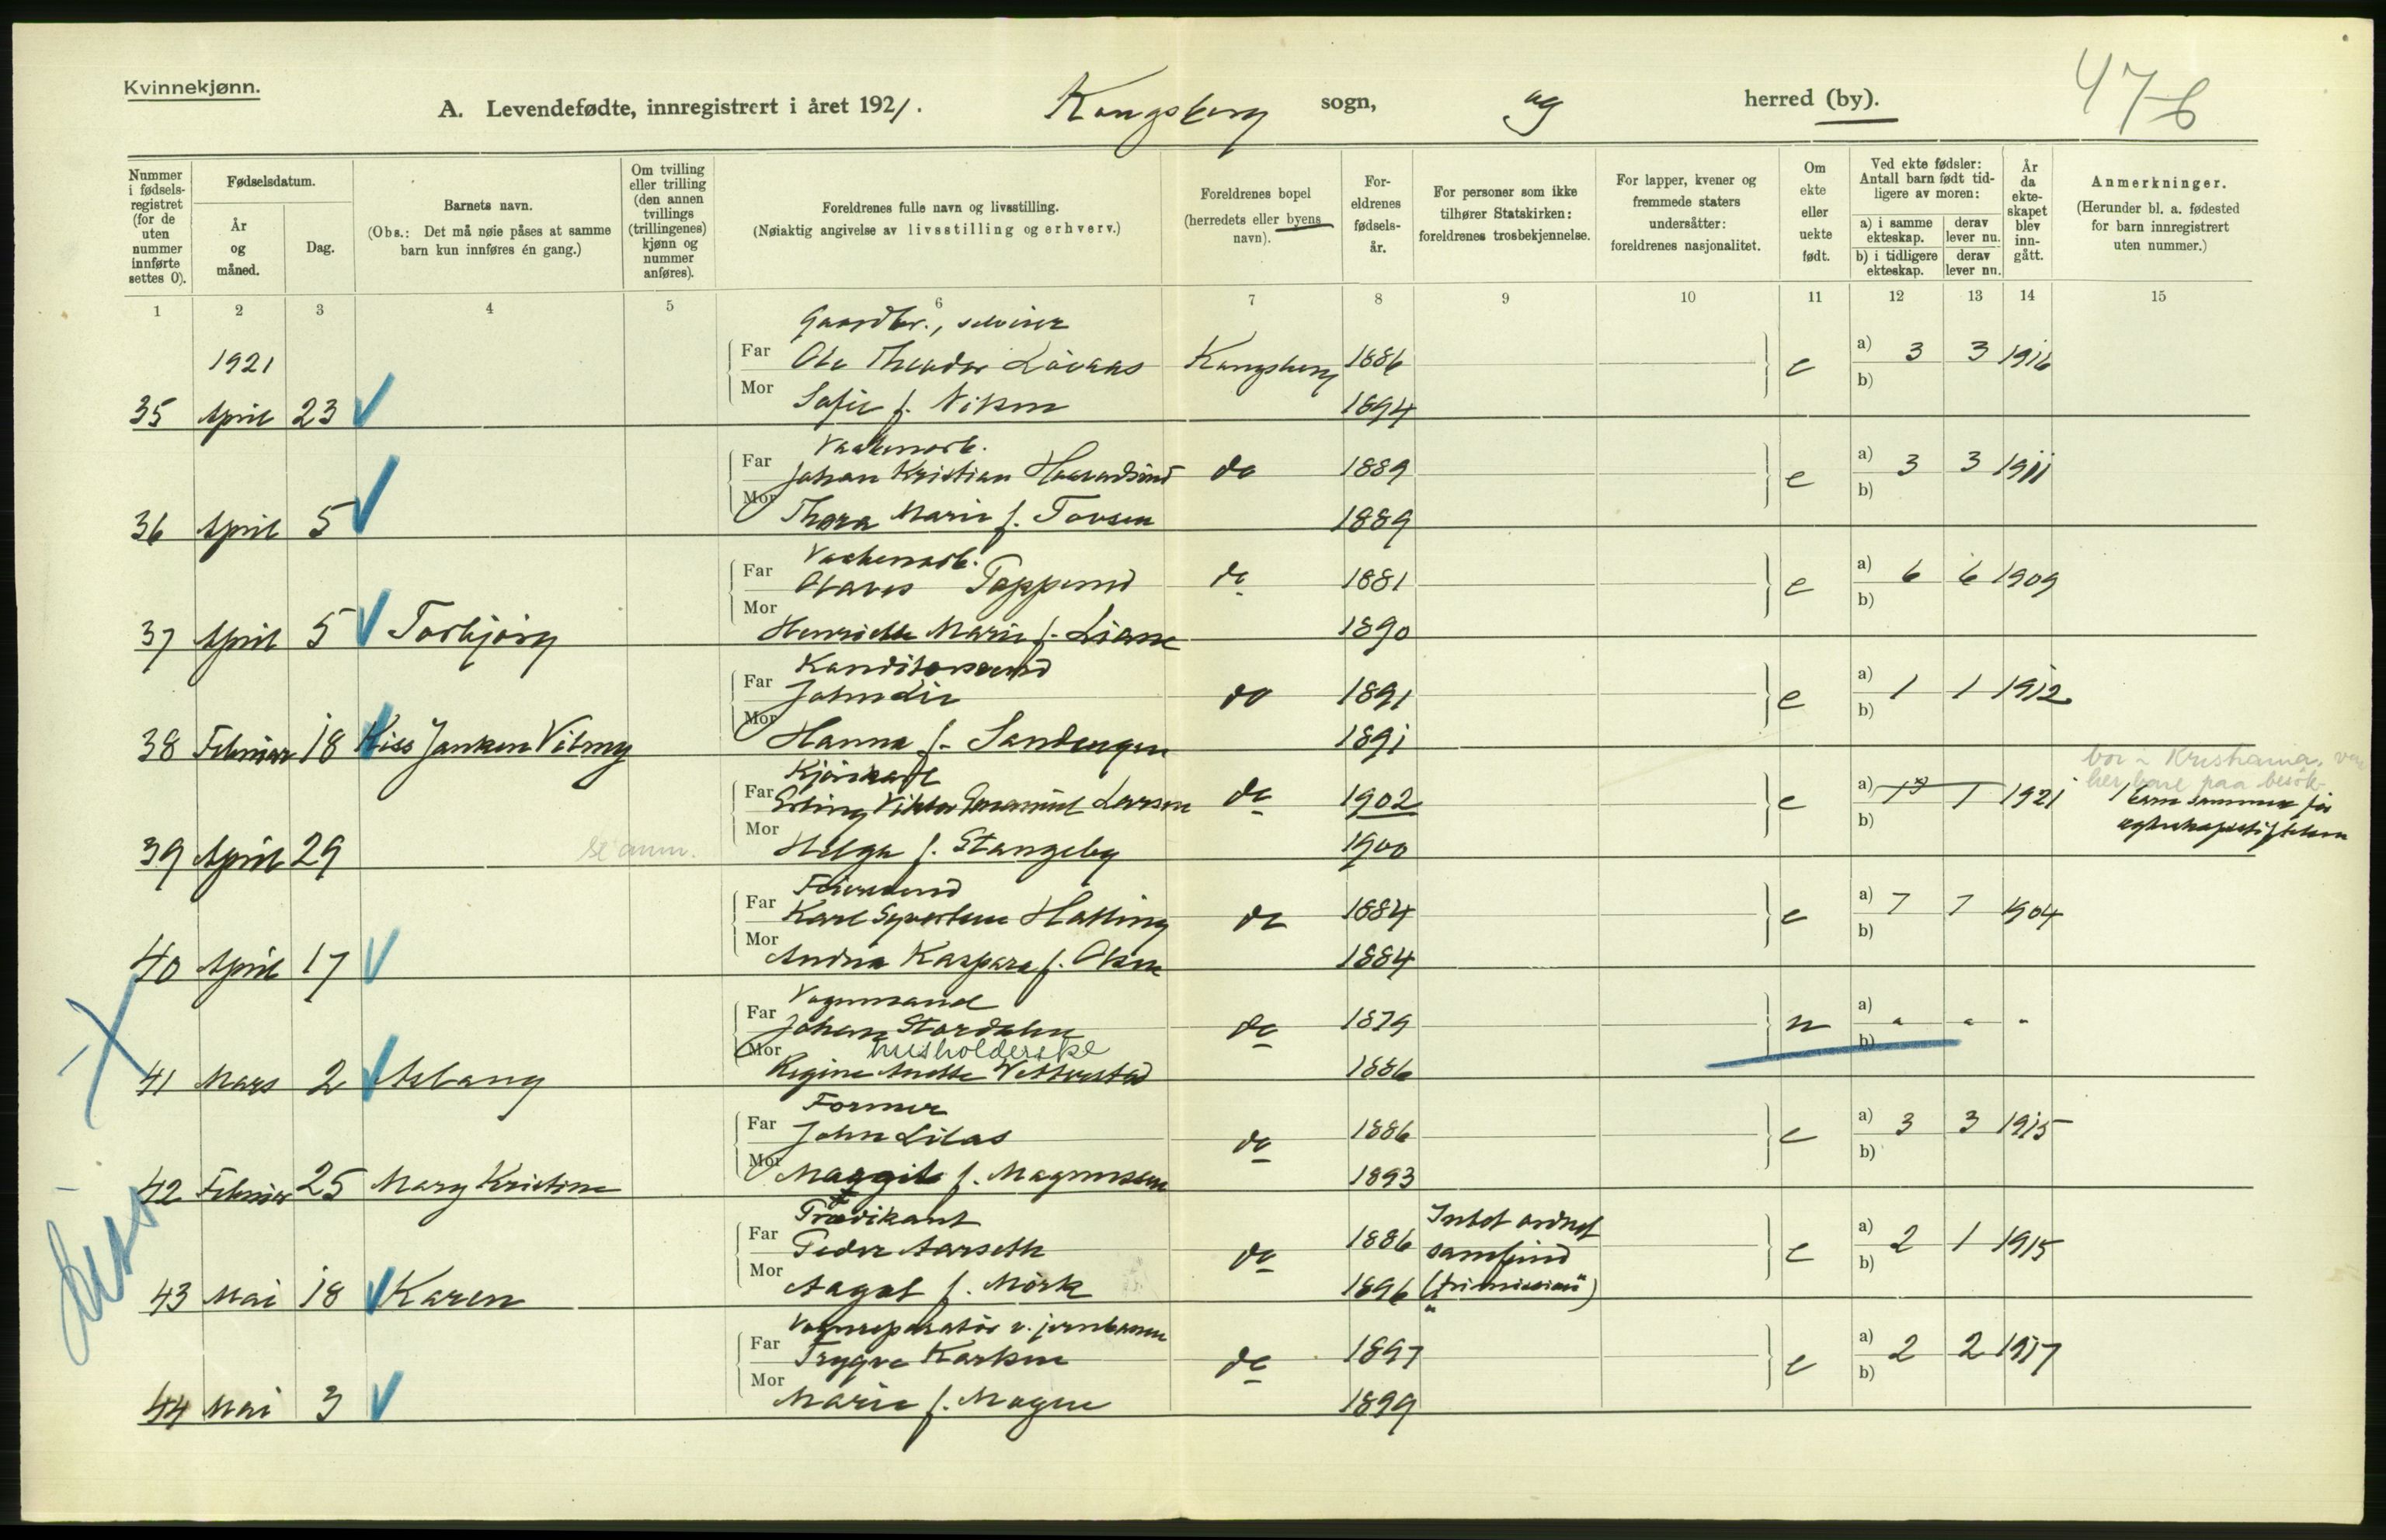 Kvinnekjønn.
A. Levendefødte, innregistrert i året 1921. Kongsberg sogn, og herred (by).
476
Nummer i fødsels-registret (for de uten nummer innførte settes 0).
Fødselsdatum.
År og måned.
Dag.
Barnets navn.
(Obs.: Det må nøie påses at samme barn kun innføres én gang.)
Om tvilling eller trilling (den annen tvillings (trillingenes) kjønn og nummer anføres).
Foreldrenes fulle navn og livsstilling.
(Nøiaktig angivelse av livsstilling og erhverv.)
Foreldrenes bopel (herredets eller byens navn).
For-eldrenes fødsels-år.
For personer som ikke tilhører Statskirken: foreldrenes trosbekjennelse.
For lapper, kvener og fremmede staters undersåtter: foreldrenes nasjonalitet.
Om ekte eller uekte født.
Ved ekte fødsler: Antall barn født tid-ligere av moren:
a) i samme ekteskap. derav lever nu.
b) i tidligere ekteskap. derav lever nu.
År da ekte-skapet blev inn-gått.
Anmerkninger.
(Herunder bl. a. fødested for barn innregistrert uten nummer.)
1 2 3 4 5 6 7 8 9 10 11 12 13 14 15
Gaardbr., selveier
1921 Far Ole Theodor Løvaas Kongsberg 1886 e a) 3 3 1916
b)
35 April 23 Mor Sofie f. Nilsen 1894
Far Johan Kristian do 1889 e a) 3 3 1911
b)
36 April 5 Mor Thora Marie f. Tovsen 1889
Far do 1881 e a) 6 6 1909
b)
37 April 5 Torbjørg Mor Henriette Marie f. 1890
Far John Lie do 1891 e a) 1 1 1912
b)
38 Februar 18 Kiss Janken Vilmy Mor Hanna f. Sandengen 1891
bor i Kristiania, var
her bare paa besøk
Kjørekarl
Far Erling Viktor Emanuel Larsen do 1902 e a) 1 1921 1 barn sammen før
b) egteskapsstiftelsen
39 April 29 se anm. Mor Helga f. Stangeby 1900
Feiersvend
Far Karl Syvertsen Halling do 1884 e a) 7 7 1904
b)
40 April 17 Mor Andrea Kaspara f. Olsen 1884
Vognmand
Far Johan Stordahn do 1879 u a) - - -
husholderske b)
41 Mars 2 Aslaug Mor Regine Anette 1886
Former
Far John Lilaas do 1886 e a) 3 3 1915
b)
42 Februar 25 Mary Kristine Mor Margit f. Magnussen 1893
Prædikant Intet ordnet
Far Peder Aarseth do 1886 samfund e a) 2 1 1915
b)
43 Mai 18 Karen Mor Aagot f. Mørk 1896 ("frimission")
Vognreparatør v. jernbanen
Far Trygve Karlsen do 1897 e a) 2 2 1917
b)
44 Mai 3 Mor Marie f. Mogen 1899